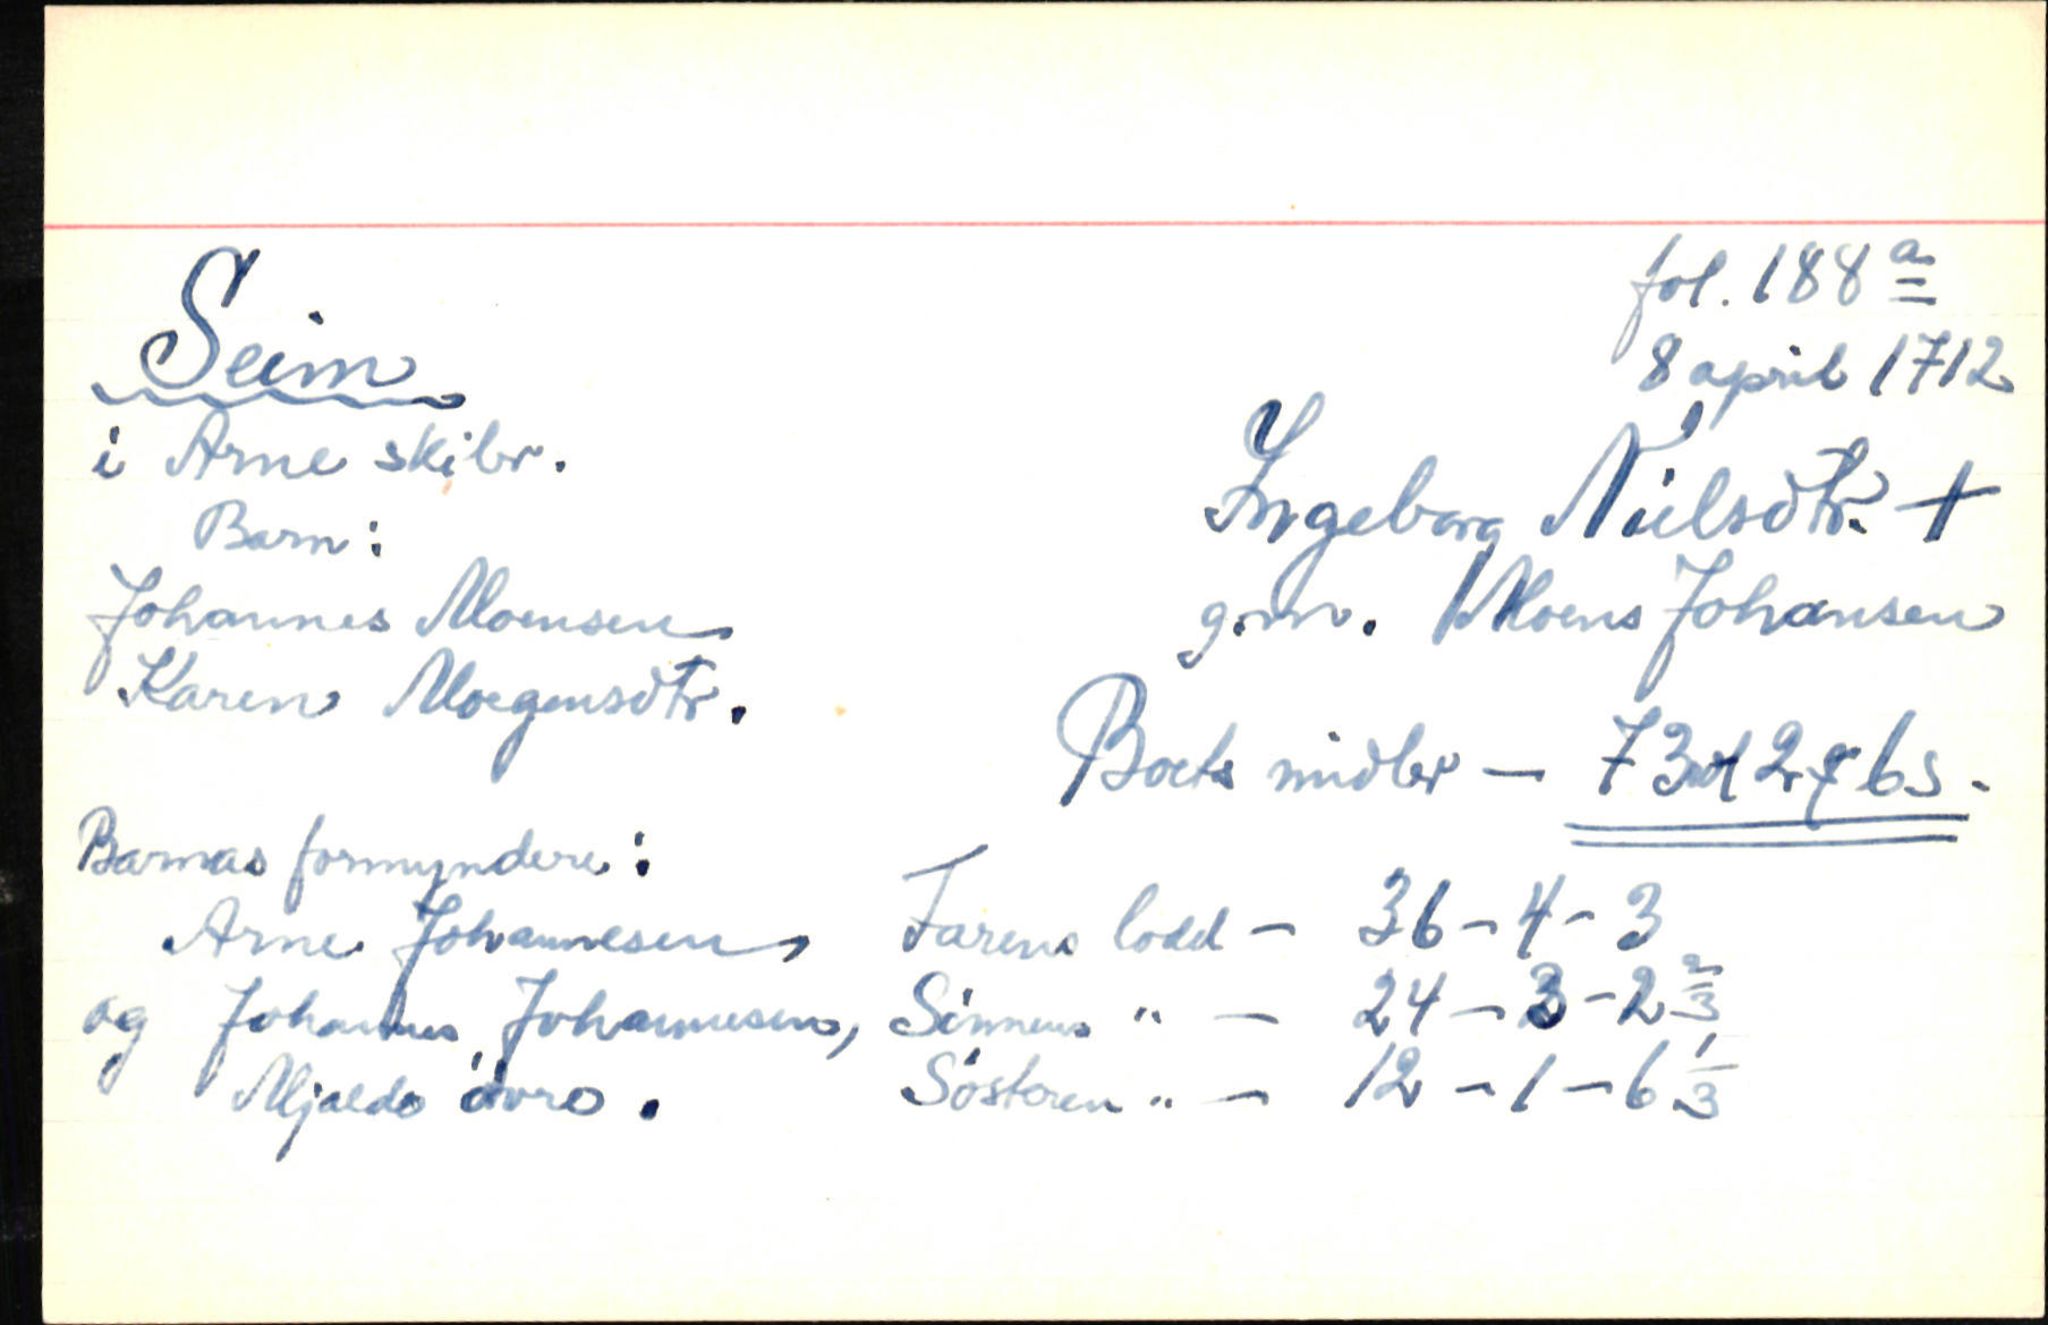 fol. 188 a
8 april 1712
Seim
i Arne skibr.
Ingeborg Nielsdtr. +
g.m. Moens Johansen
Barn:
Johannes Moensen
Karen Moegensdtr.
Boets midler — 73 rd 2 ʠ 6 s.
Barnas formyndere:
Arne Johannesen
og Johannes Johannesen,
Mjaelde övre.
Farens lodd — 36 – 4 – 3
Sönnens " — 24 – 3 – 2 2/3
Søsteren " — 12 – 1 – 6 1/3